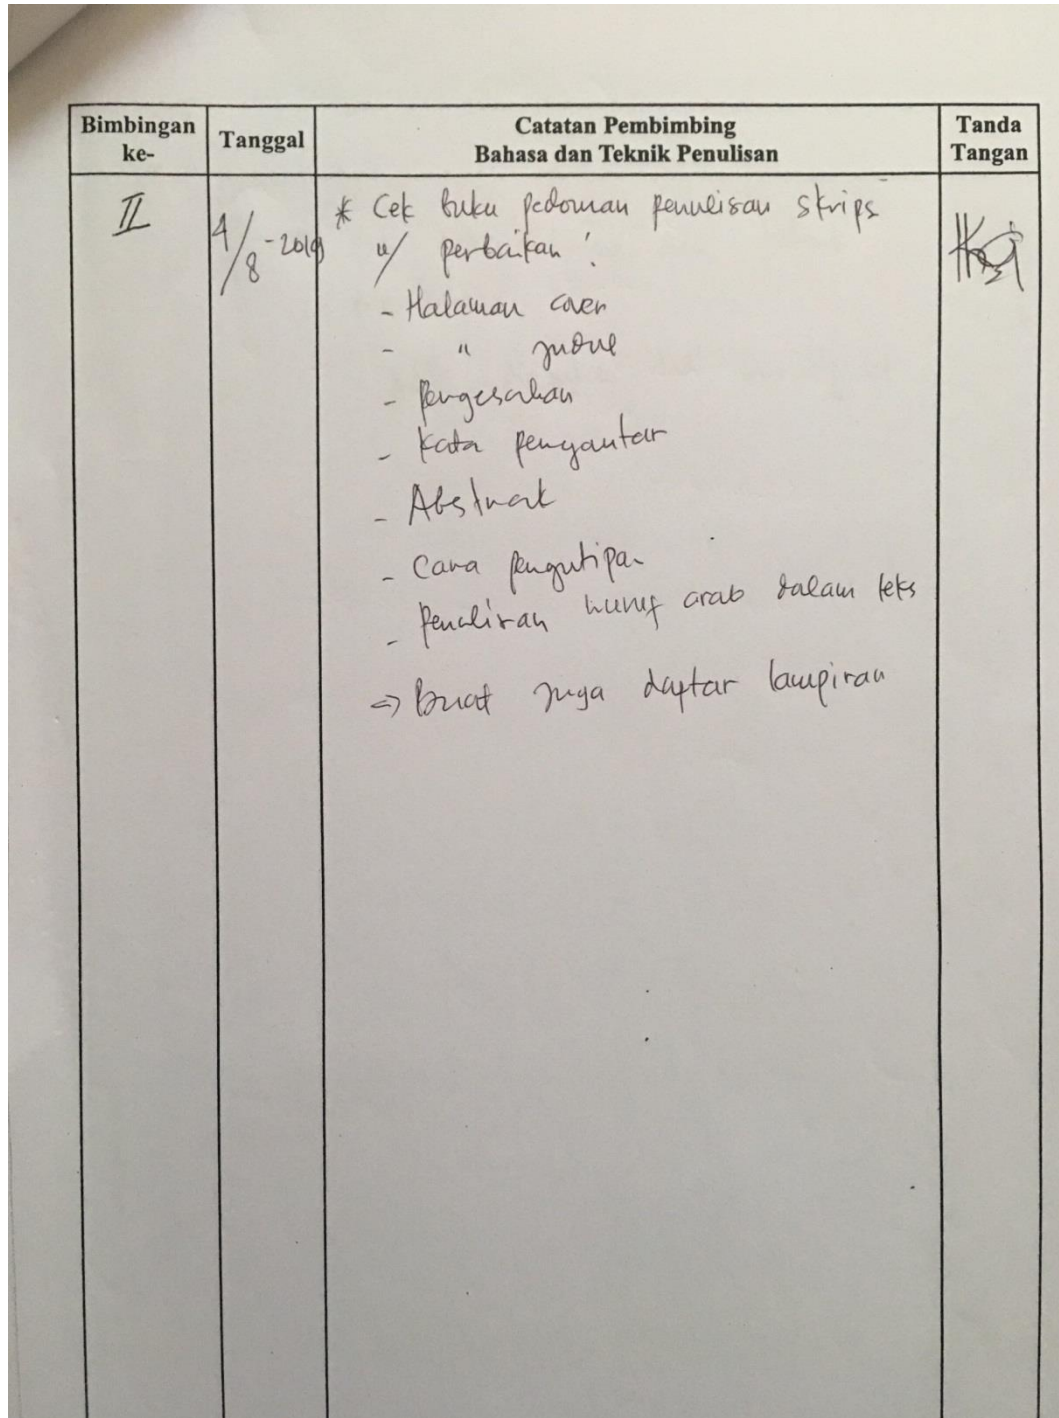 Bimbingan ke-
Tanggal
Catatan Pembimbing
Bahasa dan Teknik Penulisan
Tanda Tangan
II
4/8-2019
* Cek buku pedoman penulisan skrips
u/ perbaikan :
- Halaman cover
- " judul
- Pengesahan
- Kata pengantar
- Abstrak
- Cara pengutipan
- Penulisan huruf arab dalam teks
=> Buat juga daftar lampiran